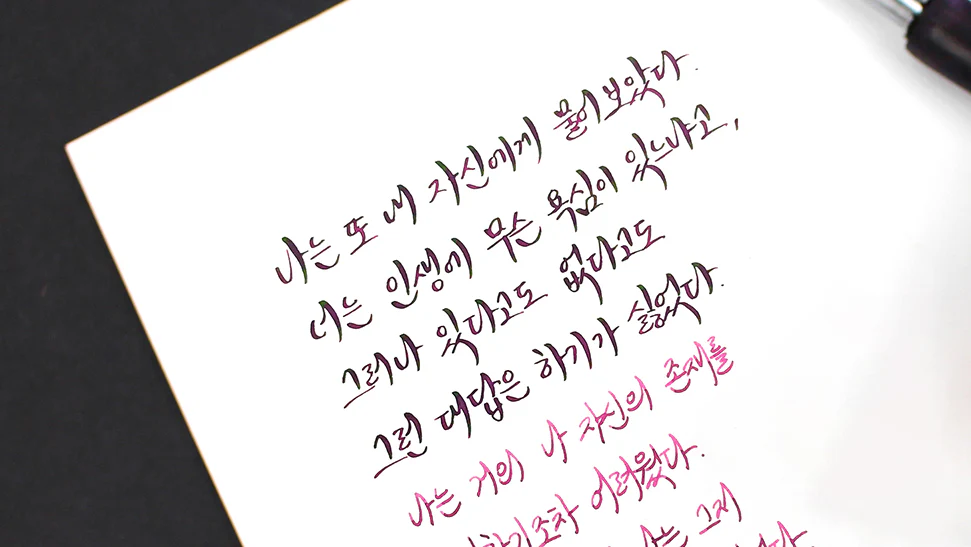 나는 또 내 자신에게 물어보았다.
너는 인생에 무슨 욕심이 있느냐고,
그러나 있다고도 없다고도
그런 대답은 하기가 싫었다.
나는 거의 나 자신의 존재를
하기조차 어려웠다.
나는 그저